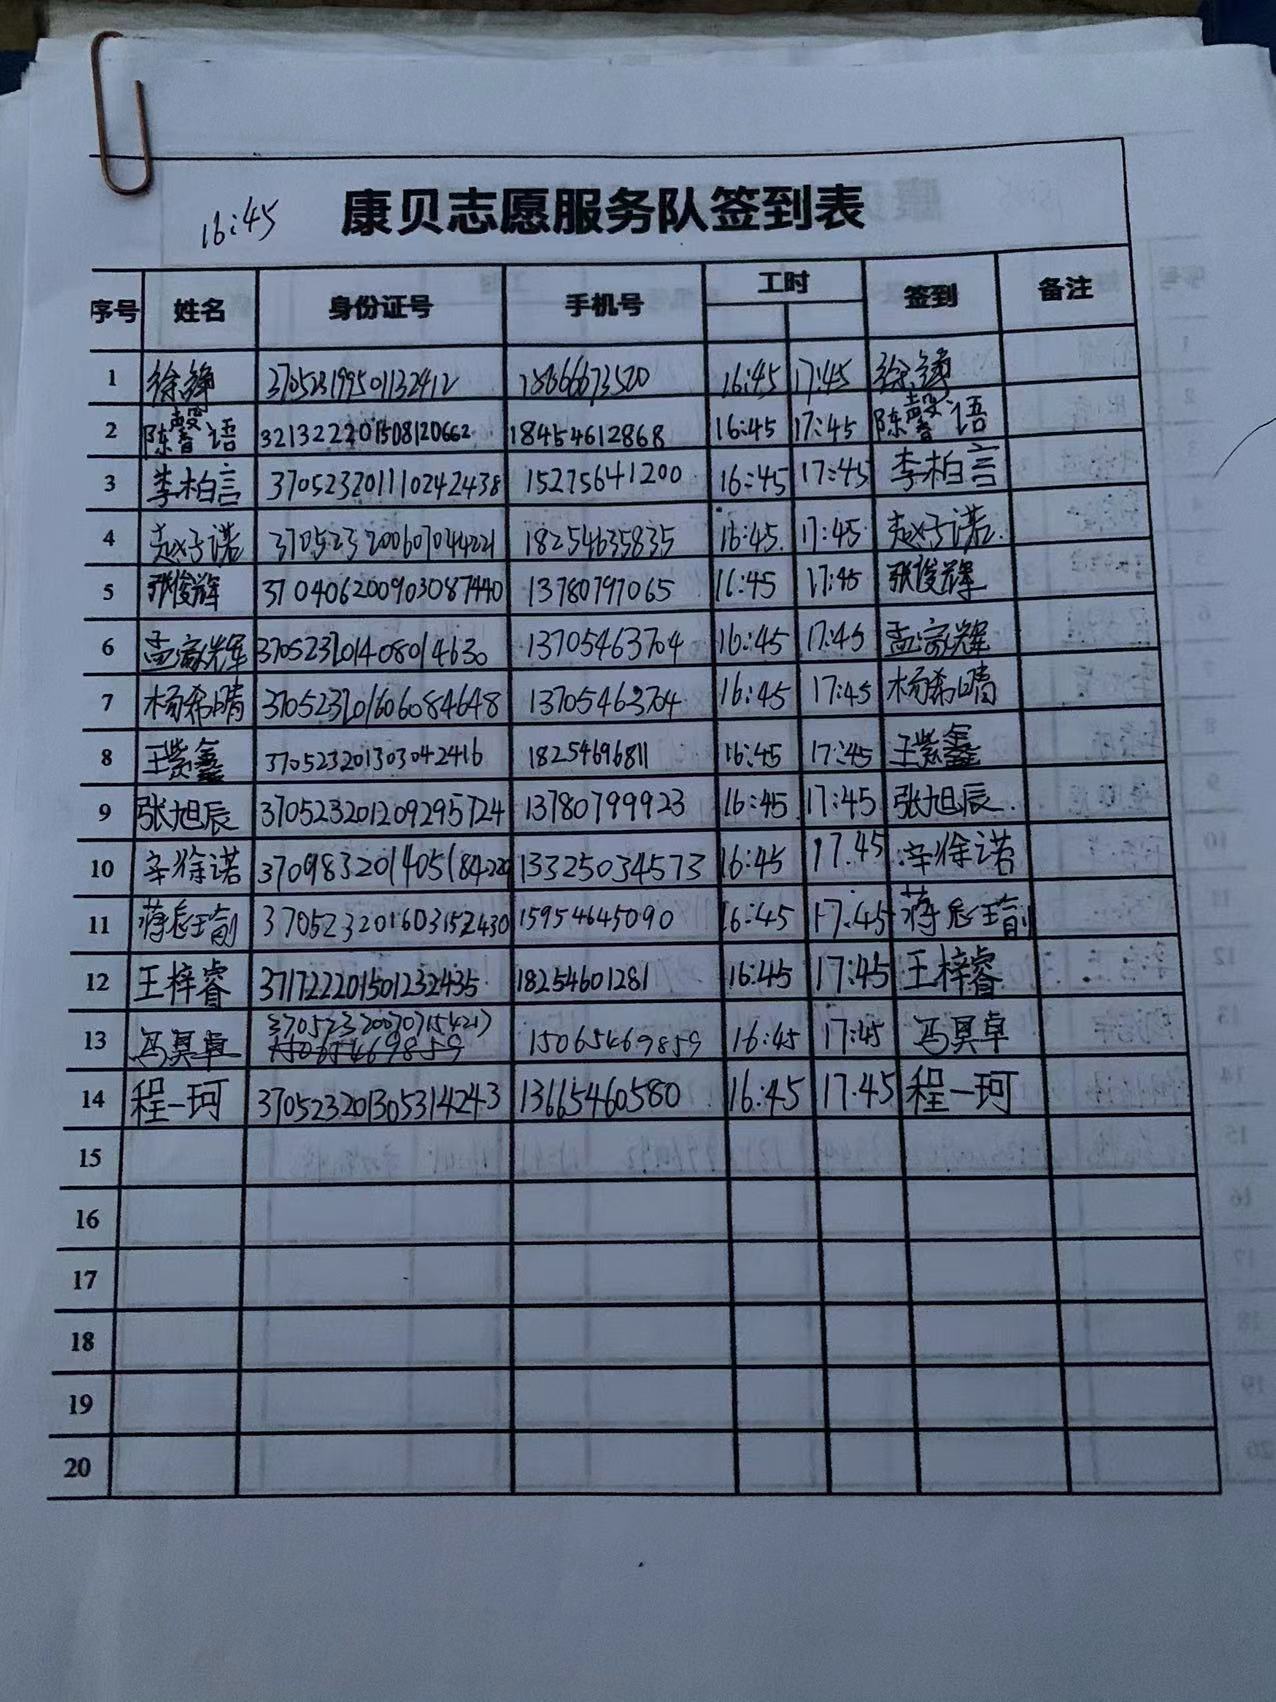 16:45
康贝志愿服务队签到表
序号 姓名 身份证号 手机号 工时 签到 备注
1 徐锋 370523199501132412 18666673520 16:45 17:45 徐锋
2 陈馨语 321322201508120662 18454612868 16:45 17:45 陈馨语
3 李柏言 370523201110242438 15275641200 16:45 17:45 李柏言
4 赵子诺 370523200607044221 18254635835 16:45 17:45 赵子诺
5 张俊辉 370406200903087440 13780797065 16:45 17:45 张俊辉
6 孟家辉 370523201408014630 13705463704 16:45 17:45 孟家辉
7 杨希晴 370523201606084648 13705463704 16:45 17:45 杨希晴
8 王紫鑫 370523201303042416 18254696811 16:45 17:45 王紫鑫
9 张旭辰 370523201209295724 13780799923 16:45 17:45 张旭辰
10 辛徐诺 370983201405184220 13325034573 16:45 17.45 辛徐诺
11 蒋 370523201603152430 15954645090 16:45 17:45 蒋
12 王梓睿 371722201501232435 18254601281 16:45 17:45 王梓睿
13 冯昊卓 370523200707154217 15065469859 16:45 17:45 冯昊卓
14 程一珂 370523201305314243 13665460580 16:45 17.45 程一珂
15
16
17
18
19
20